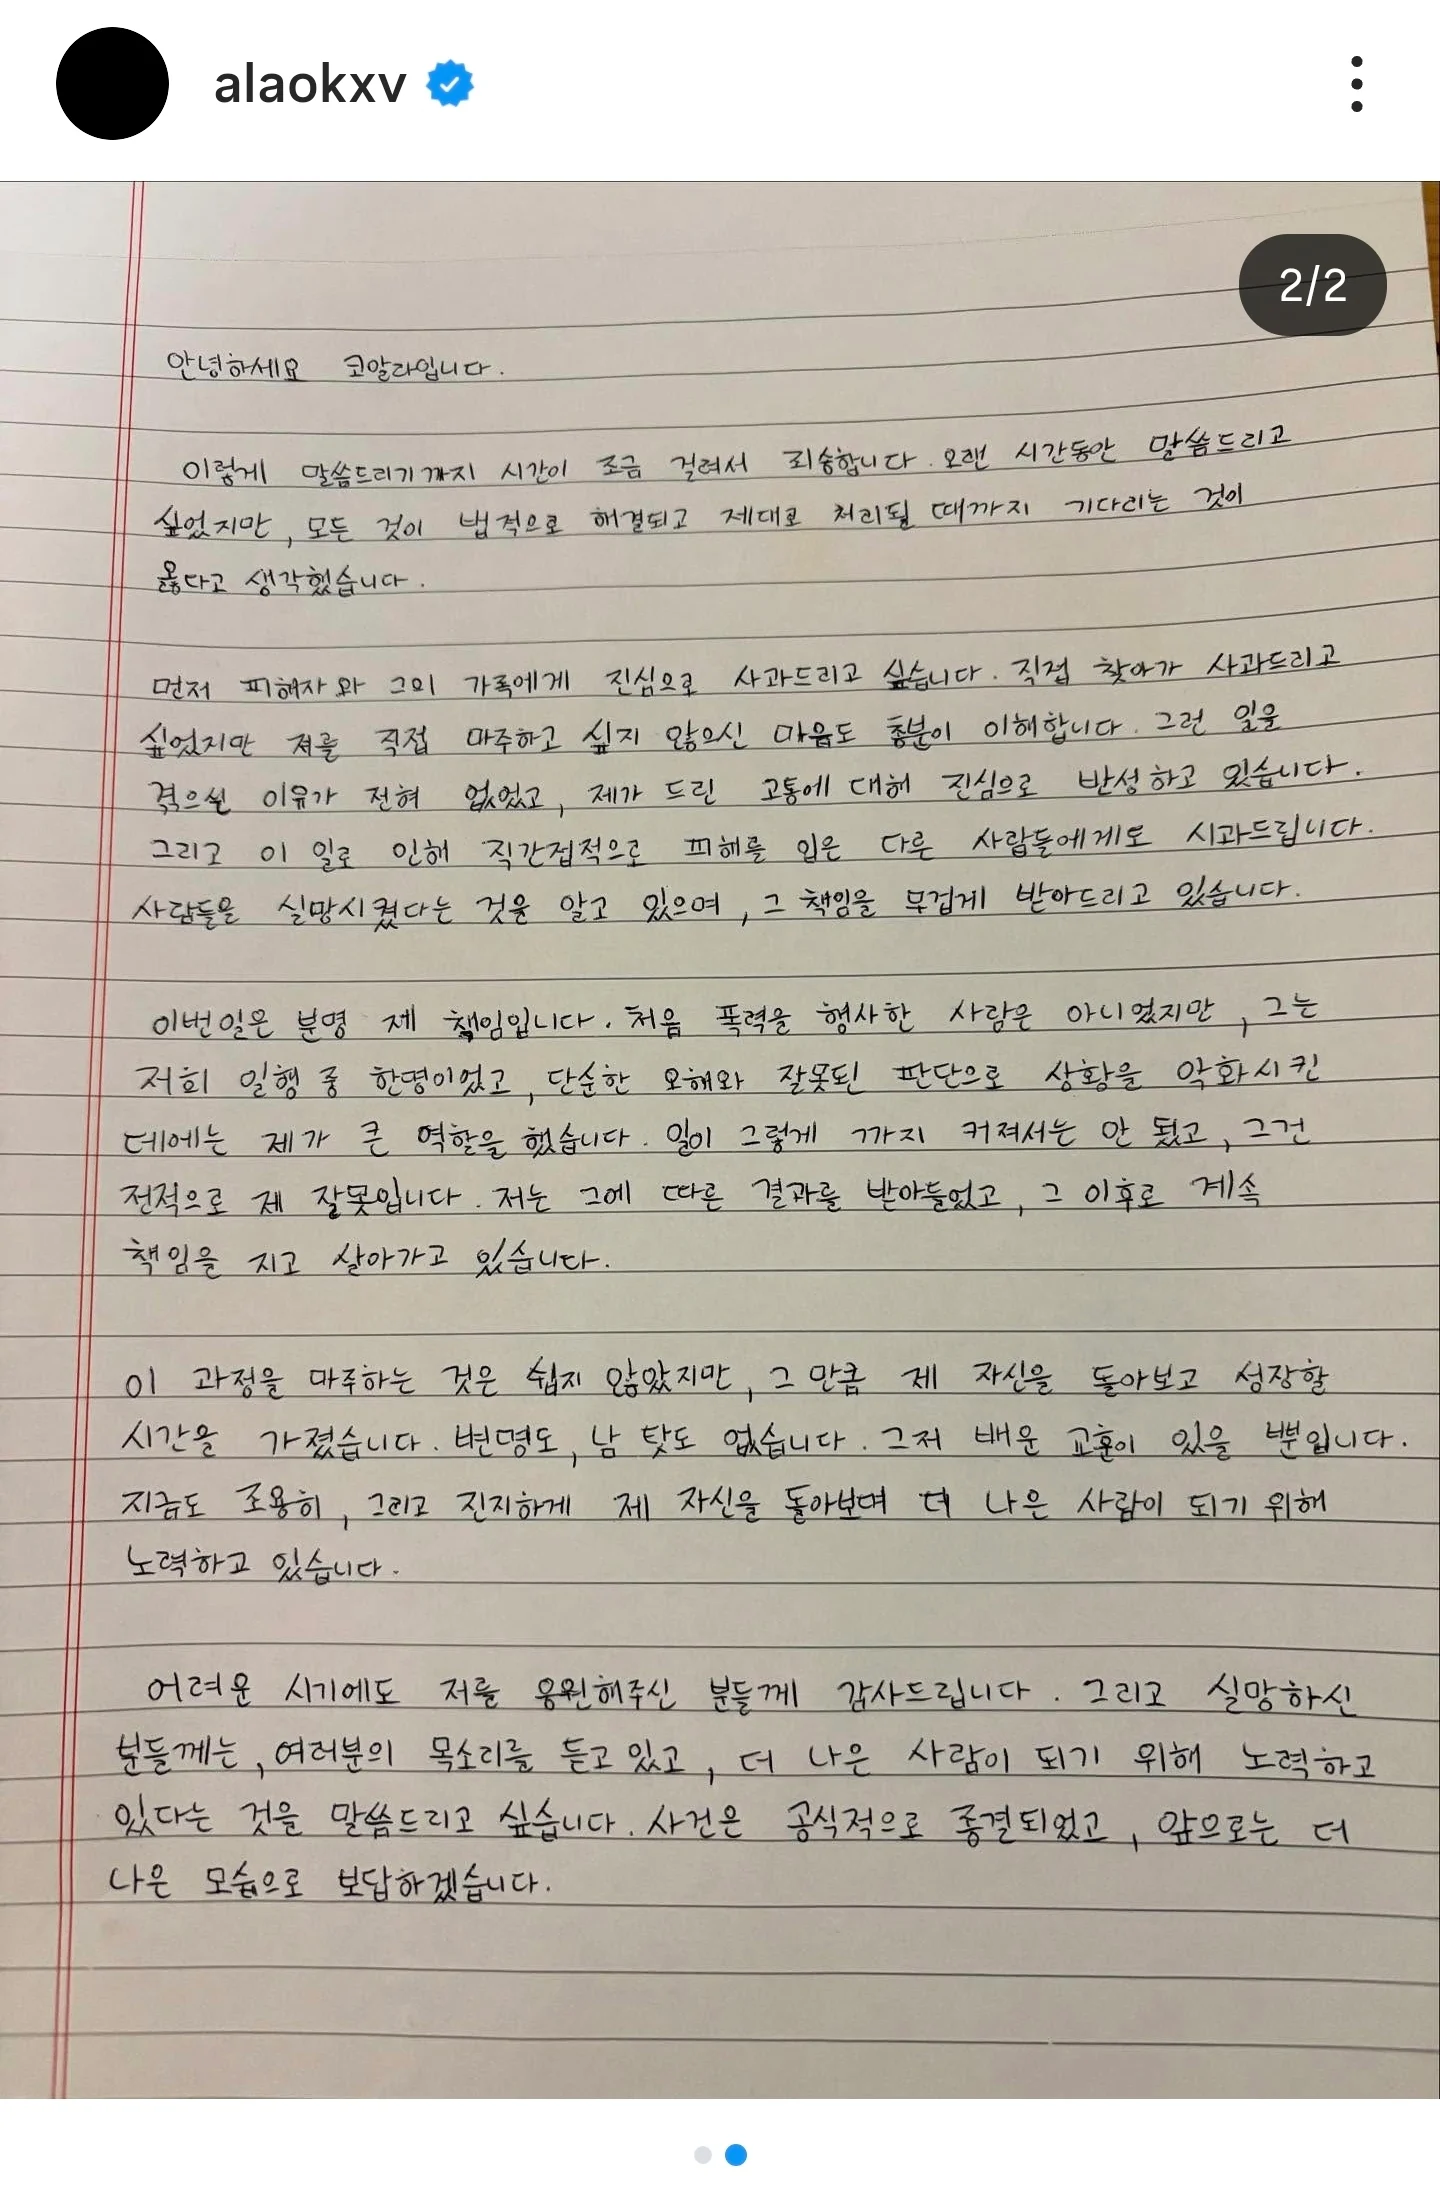 alaokxv
2/2
안녕하세요 코알라입니다.
이렇게 말씀드리기까지 시간이 조금 걸려서 죄송합니다. 오랜 시간동안 말씀드리고
싶었지만, 모든 것이 법적으로 해결되고 제대로 처리될 때까지 기다리는 것이
옳다고 생각했습니다.
먼저 피해자와 그의 가족에게 진심으로 사과드리고 싶습니다. 직접 찾아가 사과드리고
싶었지만 저를 직접 마주하고 싶지 않으신 마음도 충분이 이해합니다. 그런 일을
겪으실 이유가 전혀 없었고, 제가 드린 고통에 대해 진심으로 반성하고 있습니다.
그리고 이 일로 인해 직간접적으로 피해를 입은 다른 사람들에게도 시과드립니다.
사람들을 실망시켰다는 것을 알고 있으며, 그 책임을 무겁게 받아드리고 있습니다.
이번일은 분명 제 책임입니다. 처음 폭력을 행사한 사람은 아니었지만, 그는
저희 일행 중 한명이었고, 단순한 오해와 잘못된 판단으로 상황을 악화시킨
데에는 제가 큰 역할을 했습니다. 일이 그렇게 까지 커져서는 안 됐고, 그건
전적으로 제 잘못입니다. 저는 그에 따른 결과를 받아들었고, 그 이후로 계속
책임을 지고 살아가고 있습니다.
이 과정을 마주하는 것은 쉽지 않았지만, 그 만큼 제 자신을 돌아보고 성장할
시간을 가졌습니다. 변명도, 남 탓도 없습니다. 그저 배운 교훈이 있을 뿐입니다.
지금도 조용히, 그리고 진지하게 제 자신을 돌아보며 더 나은 사람이 되기 위해
노력하고 있습니다.
어려운 시기에도 저를 응원해주신 분들께 감사드립니다. 그리고 실망하신
분들께는, 여러분의 목소리를 듣고 있고, 더 나은 사람이 되기 위해 노력하고
있다는 것을 말씀드리고 싶습니다. 사건은 공식적으로 종결되었고, 앞으로는 더
나은 모습으로 보답하겠습니다.